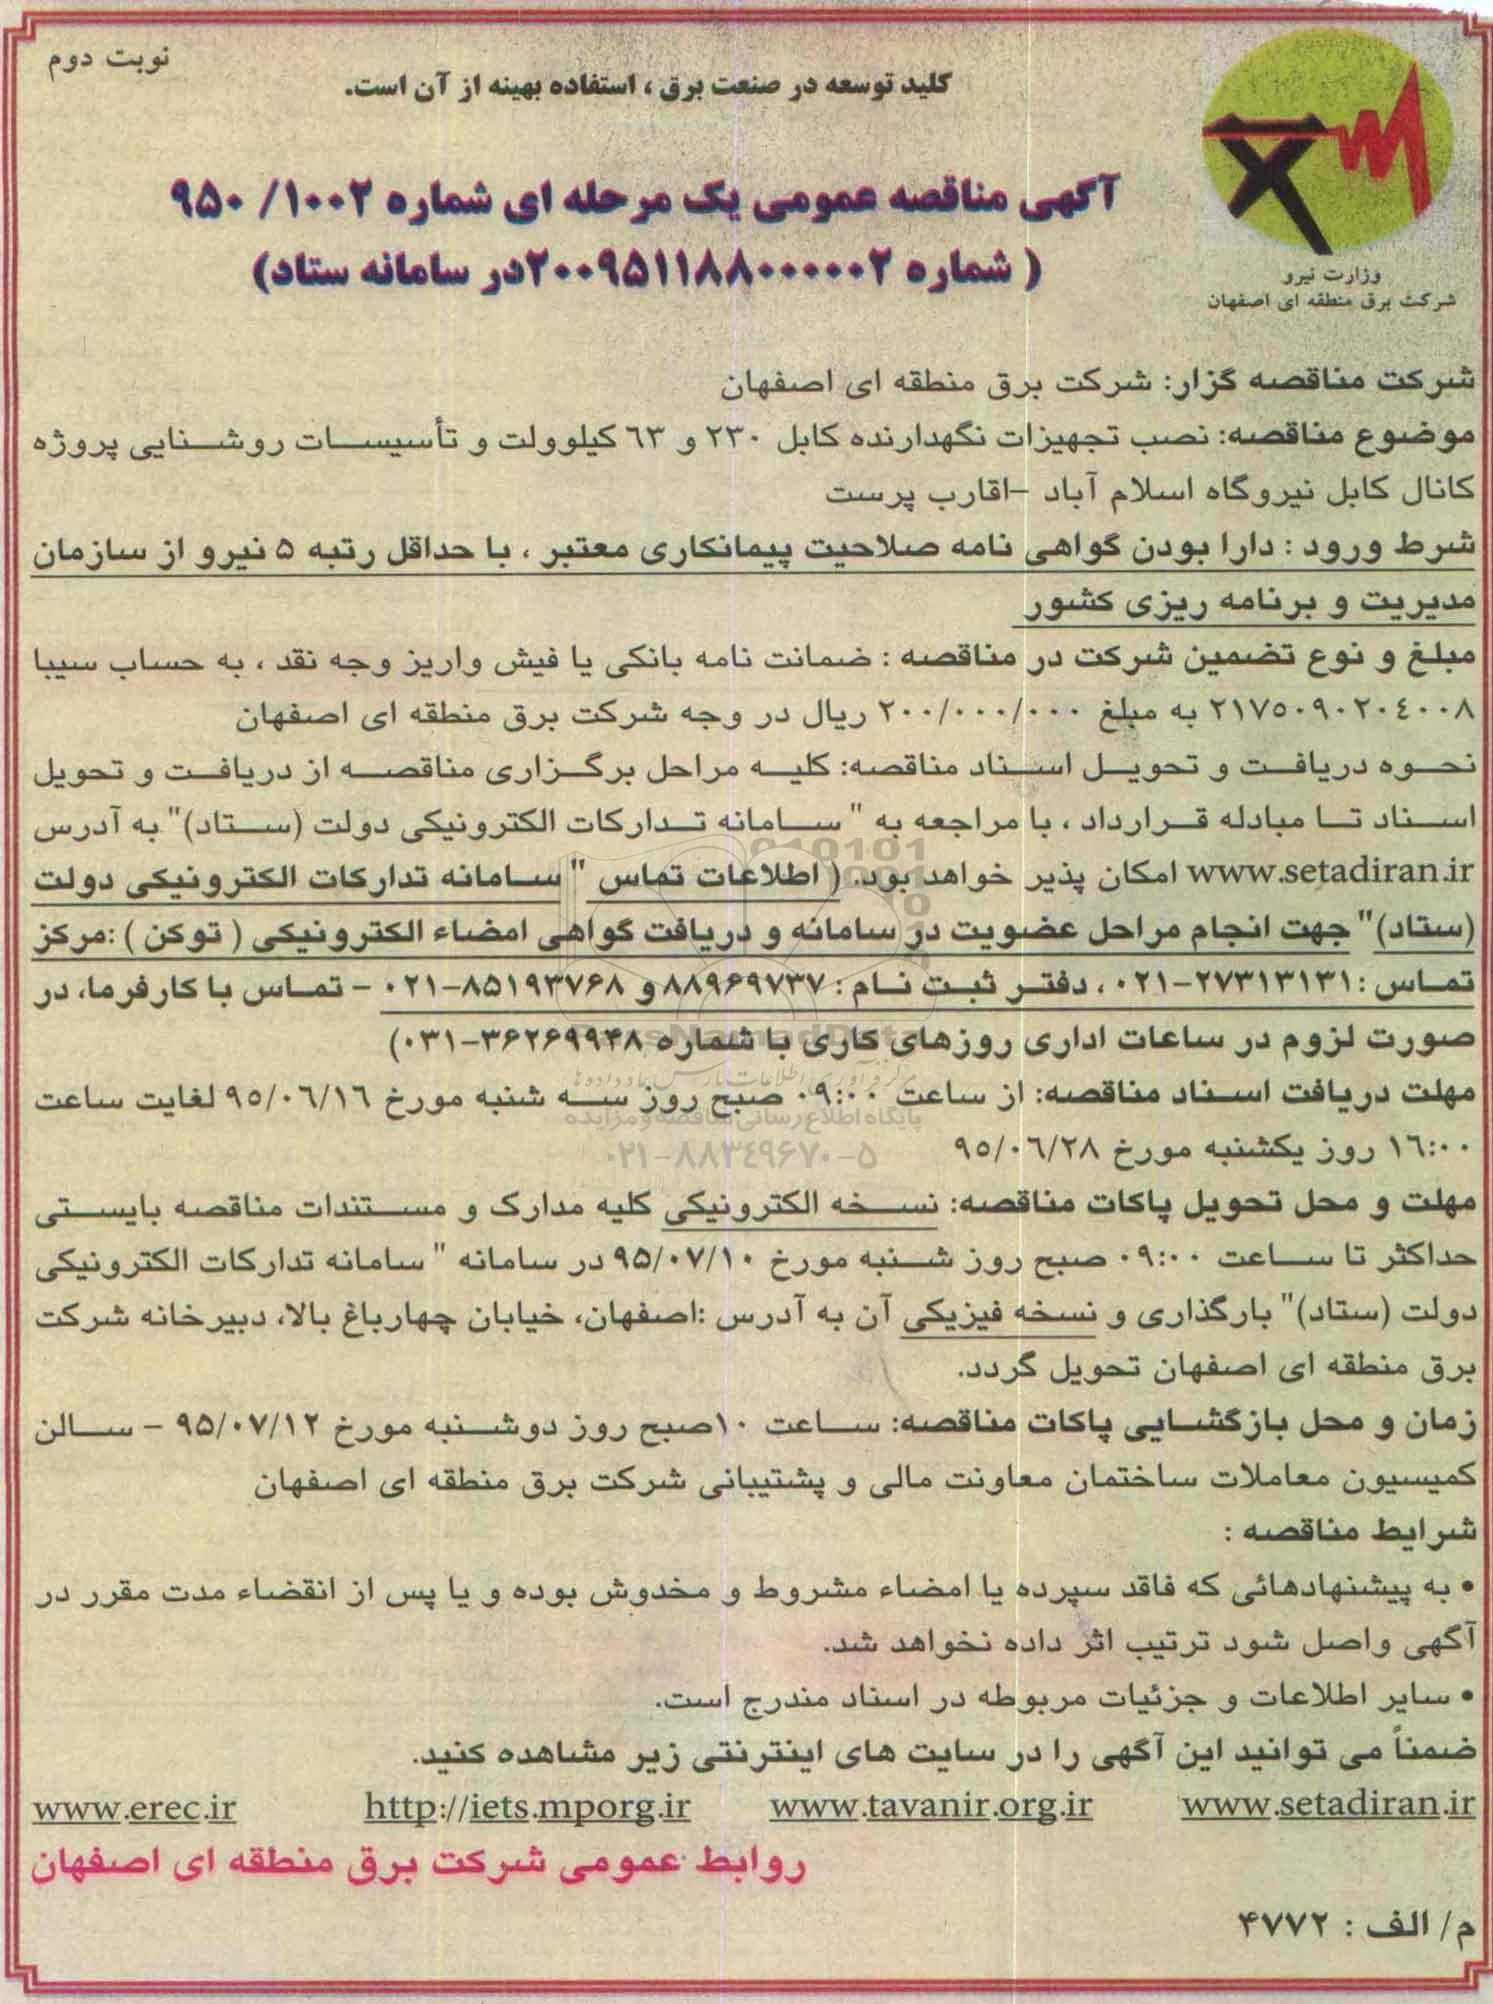 نوبت دوم
کلید توسعه در صنعت برق ، استفاده بهینه از آن است.
آگهی مناقصه عمومی یک مرحله ای شماره ۱۰۰۲/ ۹۵۰
( شماره ۲۰۰۹۵۱۱۸۸۰۰۰۰۰۲در سامانه ستاد)
وزارت نیرو
شرکت برق منطقه ای اصفهان
شرکت مناقصه گزار: شرکت برق منطقه ای اصفهان
موضوع مناقصه: نصب تجهیزات نگهدارنده کابل ۲۳۰ و ۶۳ کیلوولت و تأسیسات روشنایی پروژه
کانال کابل نیروگاه اسلام آباد –اقارب پرست
شرط ورود : دارا بودن گواهی نامه صلاحیت پیمانکاری معتبر ، با حداقل رتبه ۵ نیرو از سازمان
مدیریت و برنامه ریزی کشور
مبلغ و نوع تضمین شرکت در مناقصه : ضمانت نامه بانکی یا فیش واریز وجه نقد ، به حساب سیبا
۲۱۷۵۰۹۰۲۰۴۰۰۸ به مبلغ ۲۰۰/۰۰۰/۰۰۰ ریال در وجه شرکت برق منطقه ای اصفهان
نحوه دریافت و تحویل اسناد مناقصه: کلیه مراحل برگزاری مناقصه از دریافت و تحویل
اسناد تا مبادله قرارداد ، با مراجعه به " سامانه تدارکات الکترونیکی دولت (ستاد)" به آدرس
www.setadiran.ir امکان پذیر خواهد بود. ( اطلاعات تماس " سامانه تدارکات الکترونیکی دولت
(ستاد)" جهت انجام مراحل عضویت در سامانه و دریافت گواهی امضاء الکترونیکی ( توکن ) :مرکز
تماس : ۲۷۳۱۳۱۳۱-۰۲۱ ، دفتر ثبت نام : ۸۸۹۶۹۷۳۷ و ۸۵۱۹۳۷۶۸-۰۲۱ – تماس با کارفرما، در
صورت لزوم در ساعات اداری روزهای کاری با شماره ۳۶۲۶۹۹۴۸-۰۳۱)
ParsNamadData
مرکز فرآوری اطلاعات پارس نماد داده ها
مهلت دریافت اسناد مناقصه: از ساعت ۰۹:۰۰ صبح روز سه شنبه مورخ ۹۵/۰۶/۱۶ لغایت ساعت
پایگاه اطلاع رسانی مناقصه و مزایده
۱۶:۰۰ روز یکشنبه مورخ ۹۵/۰۶/۲۸
۰۲۱-۸۸۳۴۹۶۷۰-۵
مهلت و محل تحویل پاکات مناقصه: نسخه الکترونیکی کلیه مدارک و مستندات مناقصه بایستی
حداکثر تا ساعت ۰۹:۰۰ صبح روز شنبه مورخ ۹۵/۰۷/۱۰ در سامانه " سامانه تدارکات الکترونیکی
دولت (ستاد)" بارگذاری و نسخه فیزیکی آن به آدرس :اصفهان، خیابان چهارباغ بالا، دبیرخانه شرکت
برق منطقه ای اصفهان تحویل گردد.
زمان و محل بازگشایی پاکات مناقصه: ساعت ۱۰صبح روز دوشنبه مورخ ۹۵/۰۷/۱۲ – سالن
کمیسیون معاملات ساختمان معاونت مالی و پشتیبانی شرکت برق منطقه ای اصفهان
شرایط مناقصه :
• به پیشنهادهائی که فاقد سپرده یا امضاء مشروط و مخدوش بوده و یا پس از انقضاء مدت مقرر در
آگهی واصل شود ترتیب اثر داده نخواهد شد.
• سایر اطلاعات و جزئیات مربوطه در اسناد مندرج است.
ضمناً می توانید این آگهی را در سایت های اینترنتی زیر مشاهده کنید.
www.setadiran.ir www.tavanir.org.ir http://iets.mporg.ir www.erec.ir
روابط عمومی شرکت برق منطقه ای اصفهان
م/ الف : ۴۷۷۲